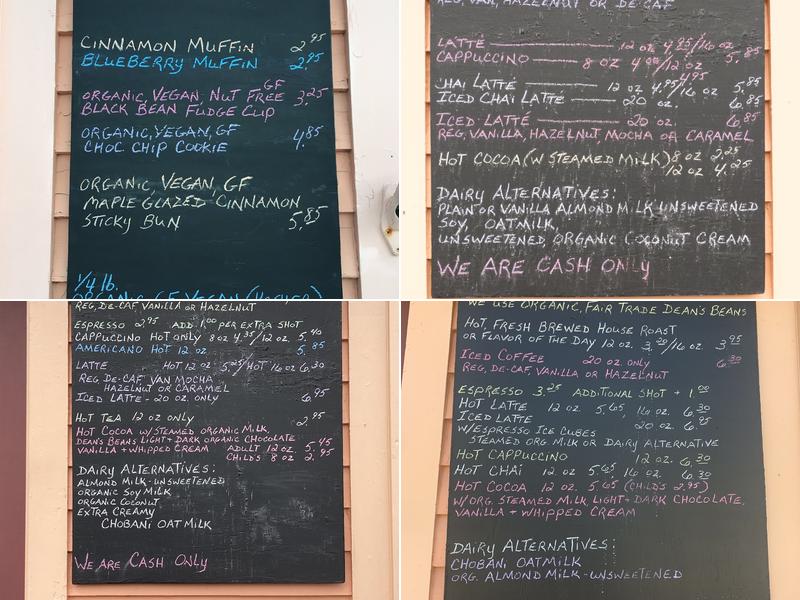 CINNAMON MUFFIN 2.95
BLUEBERRY MUFFIN 2.95
GF
ORGANIC, VEGAN, NUT FREE 3.25
BLACK BEAN FUDGE CUP
ORGANIC, VEGAN, GF 4.85
CHOC CHIP COOKIE
ORGANIC, VEGAN, GF
MAPLE GLAZED CINNAMON
STICKY BUN 5.85
1/4 lb.
REG, VAN, HAZELNUT OR DE CAF
LATTÉ 12 oz 4.95/16 oz 5.85
CAPPUCCINO 8 oz 4.00/12 oz
CHAI LATTÉ 12 oz 4.95/16 oz 5.85
ICED CHAI LATTÉ 20 oz. 6.85
ICED LATTÉ 20 oz. 6.85
REG, VANILLA, HAZELNUT, MOCHA OR CARAMEL
HOT COCOA (W STEAMED MILK) 8 oz 2.25
12 oz 4.25
DAIRY ALTERNATIVES:
PLAIN OR VANILLA ALMOND MILK UNSWEETENED
SOY, OATMILK,
UNSWEETENED, ORGANIC COCONUT CREAM
WE ARE CASH ONLY
REG, DE-CAF, VANILLA OR HAZELNUT
ESPRESSO 2.95 ADD 1.00 PER EXTRA SHOT
CAPPUCCINO HOT ONLY 8 oz 4.35/12 oz. 5.40
AMERICANO HOT 12 oz 5.85
LATTE HOT 12 oz 5.25/HOT 16 oz 6.30
REG, DE-CAF, VAN MOCHA
HAZELNUT OR CARAMEL
ICED LATTE - 20 oz. ONLY 6.95
HOT TEA 12 oz ONLY 2.95
HOT COCOA W/ STEAMED ORGANIC MILK,
DEAN'S BEANS LIGHT + DARK ORGANIC CHOCOLATE
VANILLA + WHIPPED CREAM ADULT 12 oz. 5.45
CHILD'S 8 oz 2.95
DAIRY ALTERNATIVES:
ALMOND MILK-UNSWEETENED
ORGANIC SOY MILK
ORGANIC COCONUT
EXTRA CREAMY
CHOBANI OAT MILK
WE ARE CASH ONLY
WE USE ORGANIC, FAIR TRADE DEAN'S BEANS
HOT, FRESH BREWED HOUSE ROAST
OR FLAVOR OF THE DAY 12 oz. 3.20/16 oz. 3.95
ICED COFFEE 20 oz. ONLY 6.30
REG, DE-CAF, VANILLA OR HAZELNUT
ESPRESSO 3.25 ADDITIONAL SHOT + 1.00
HOT LATTE 12 oz. 5.65 16 oz. 6.30
ICED LATTE 20 oz. 6.95
W/ESPRESSO ICE CUBES
STEAMED ORG. MILK OR DAIRY ALTERNATIVE
HOT CAPPUCCINO 12 oz. 6.30
HOT CHAI 12 oz 5.65 16 oz. 6.30
HOT COCOA 12 oz. 5.65 (CHILD'S 2.95)
W/ORG. STEAMED MILK LIGHT + DARK CHOCOLATE,
VANILLA + WHIPPED CREAM
DAIRY ALTERNATIVES:
CHOBANI OATMILK
ORG. ALMOND MILK - UNSWEETENED